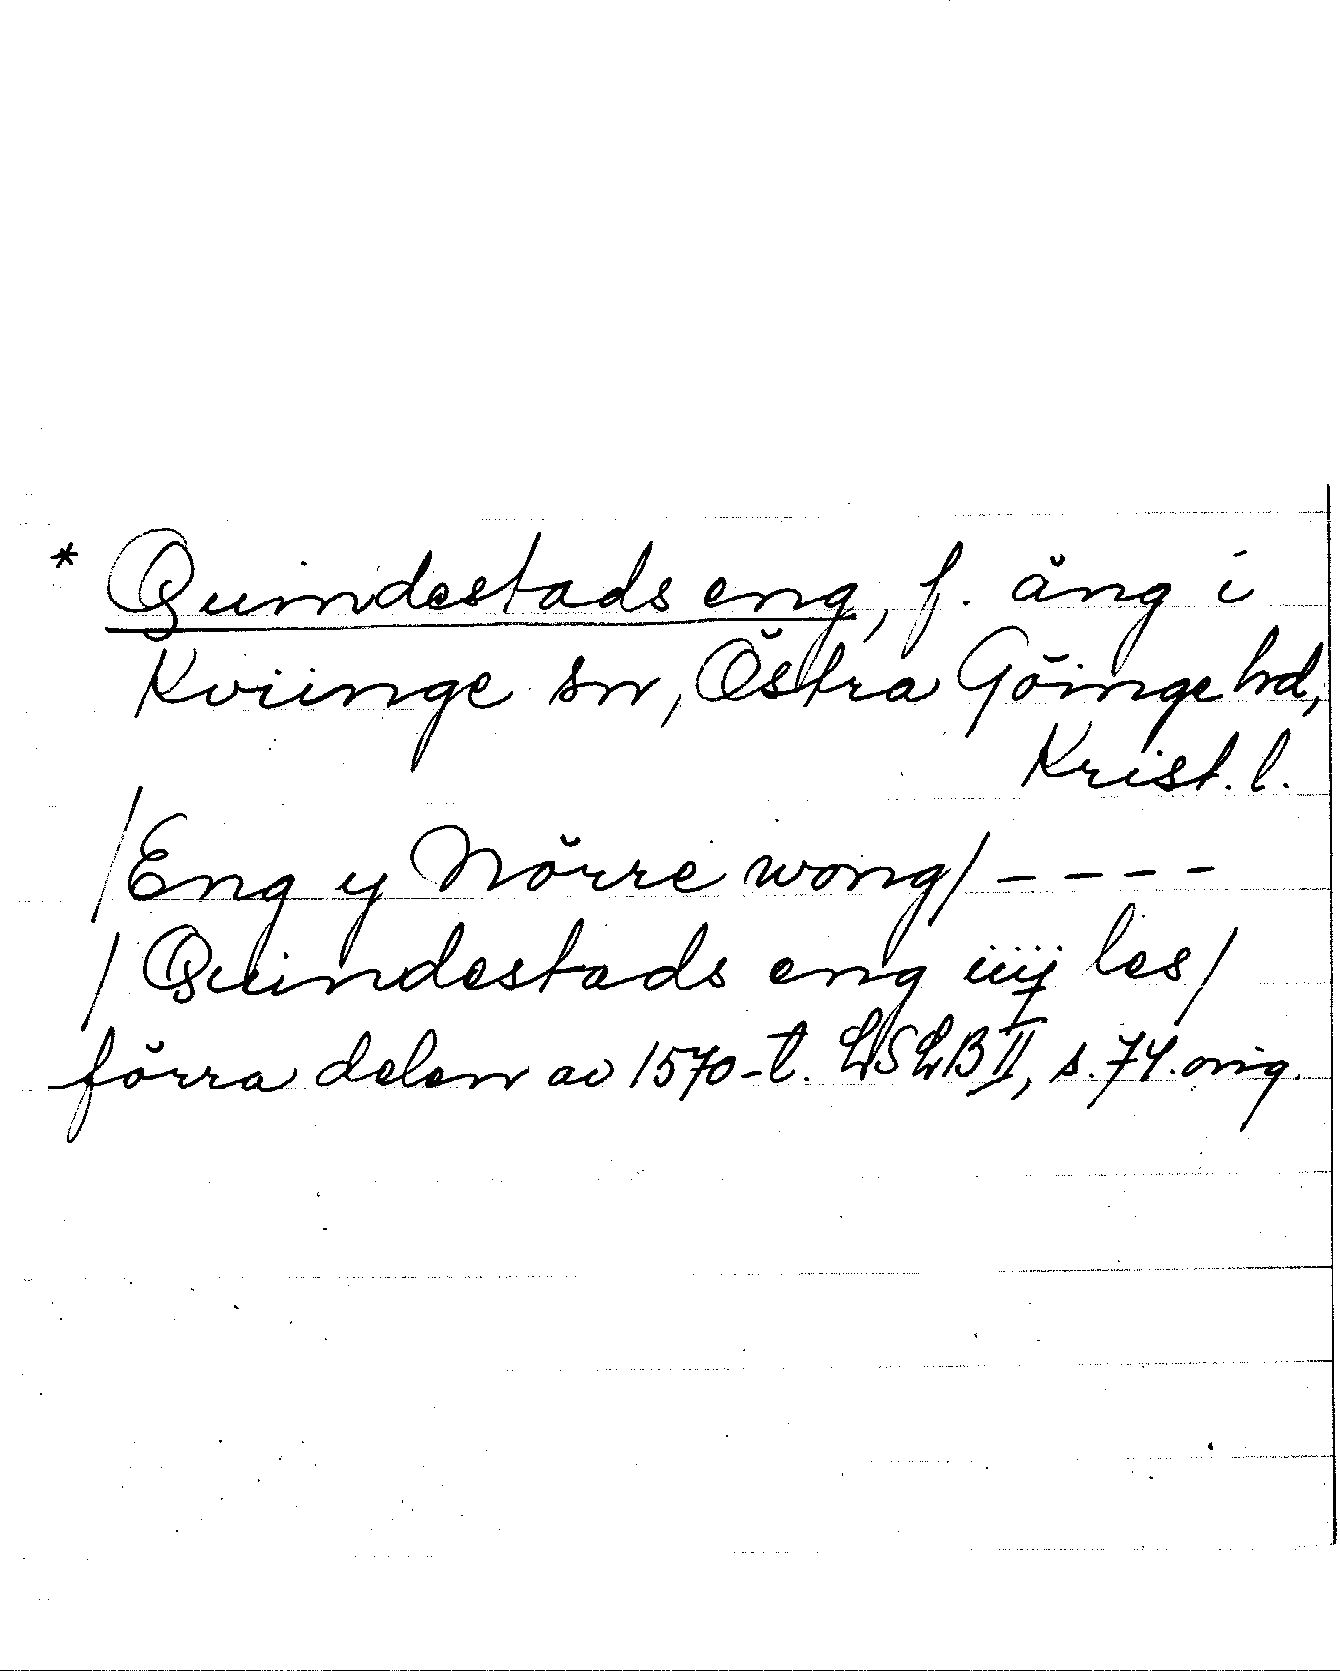 * Quindestads eng, f. äng i
Kviinge sn, Östra Göinge hd,
Krist. l.
/Eng y Nörre wong/ - - - -
/Quindestads eng iiij les/
förra delen av 1570-t. LSLB II, s. 74. orig.